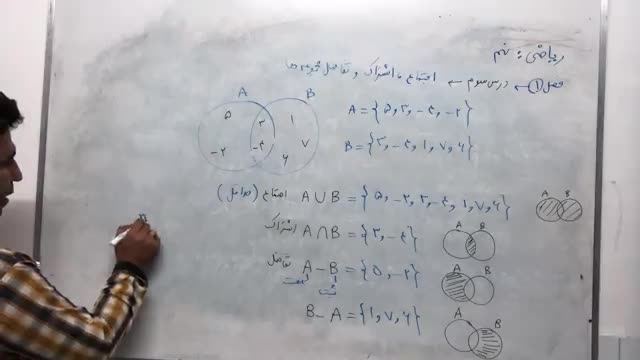 ریاضی: نهم
فصل ① ← درس سوم ← اجتماع، اشتراک و تفاضل مجموعه ها
A B
A = {۵, ۳, -۴, -۲}
B = {۳, -۴, ۱, ۷, ۶}
۵ -۲ ۳ -۴ ۱ ۷ ۶
اجتماع A ∪ B = {۵, -۲, ۳, -۴, ۱, ۷, ۶}
A B
اشتراک A ∩ B = {۳, -۴}
A B
تفاضل A - B = {۵, -۲}
A B
B - A = {۱, ۷, ۶}
A B